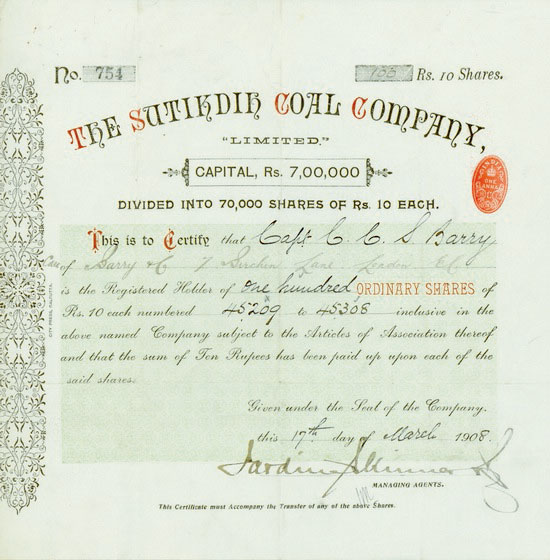 No. 754 100 Rs. 10 Shares.
THE SUTIKDIH COAL COMPANY,
"LIMITED."
CAPITAL, Rs. 7,00,000
DIVIDED INTO 70,000 SHARES OF Rs. 10 EACH.
INDIA
ONE ANNA
This is to Certify that Capt. C. C. S Barry
of Barry & C 7 Lane London EC
is the Registered Holder of One hundred ORDINARY SHARES of
Rs. 10 each numbered 45209 to 45308 inclusive in the
above named Company subject to the Articles of Association thereof
and that the sum of Ten Rupees has been paid up upon each of the
said shares.
Given under the Seal of the Company.
this 17th day of March 1908.
Jardine Skinner & Co
MANAGING AGENTS.
This Certificate must Accompany the Transfer of any of the above Shares.
CITY PRESS, CALCUTTA.